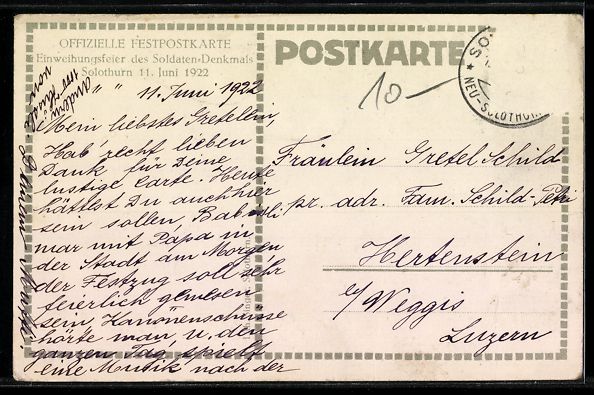 OFFIZIELLE FESTPOSTKARTE
Einweihungsfeier des Soldaten-Denkmals
Solothurn 11. Juni 1922
POSTKARTE
10
NEU-SOLOTHURN
" " 11. Juni 1922
Mein liebstes Gretelein,
Hab' recht lieben
Dank für Deine
lustige Carte. Heute
hättest Du auch hier
sein sollen, Bab
war mit Papa in
der Stadt am Morgen
der Festzug soll sehr
feierlich gewesen
sein, Kanonenschüsse
hörte man, u. den
ganzen Tag spielt
eine Musik nach der
andern
Fräulein Gretel Schild
pr. adr. Fam. Schild-Petri
Hertenstein
b/Weggis
Luzern